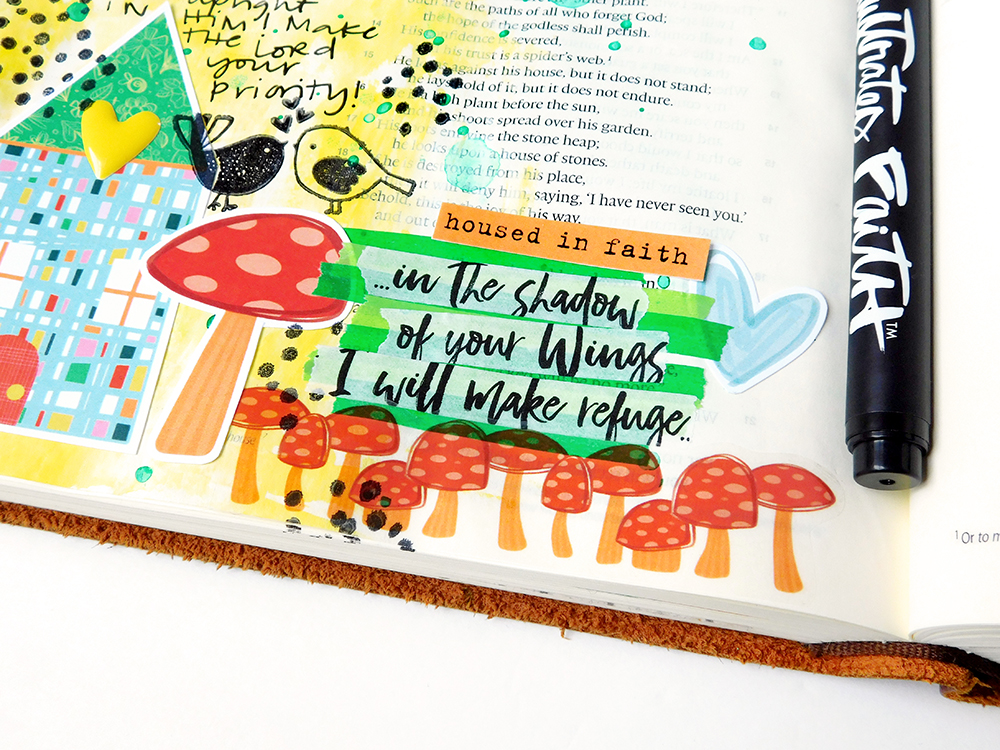 IN
upright
Him! Make
the Lord
your
Priority!
are the paths of all who forget God;
the hope of the godless shall perish.
14
His confidence is severed,
his trust is a spider's web.
15
He against his house, but it does not stand;
he lays hold of it, but it does not endure.
plant before the sun,
shoots spread over his garden.
entwine the stone heap;
he looks upon a house of stones.
18
he is destroyed from his place,
it will deny him, saying, 'I have never seen you.'
Behold, this is the joy of his way,
and out
housed in faith
...in the shadow
of your Wings
I will make refuge..
Illustrated Faith™
1 Or to